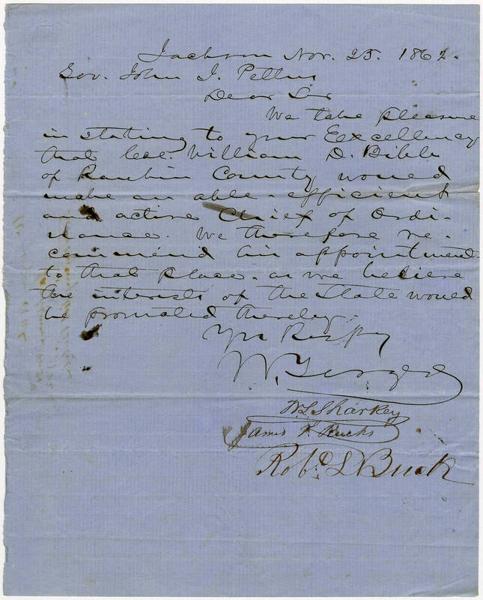 Jackson Nov. 25. 1862.
Gov. John J. Pettus
Dear Sir
We take pleasure
in stating to your Excellency
that Col. William D. Bibb
of Rankin County would
make an able - efficient
and active Chief of Ordi-
nance. We therefore re-
commend his appointment
to that place. as we believe
the interests of the State would
be promoted thereby.
Yrs Respy
W. Yerger
W L Sharkey
James F. Rucks
Robt. L Buck